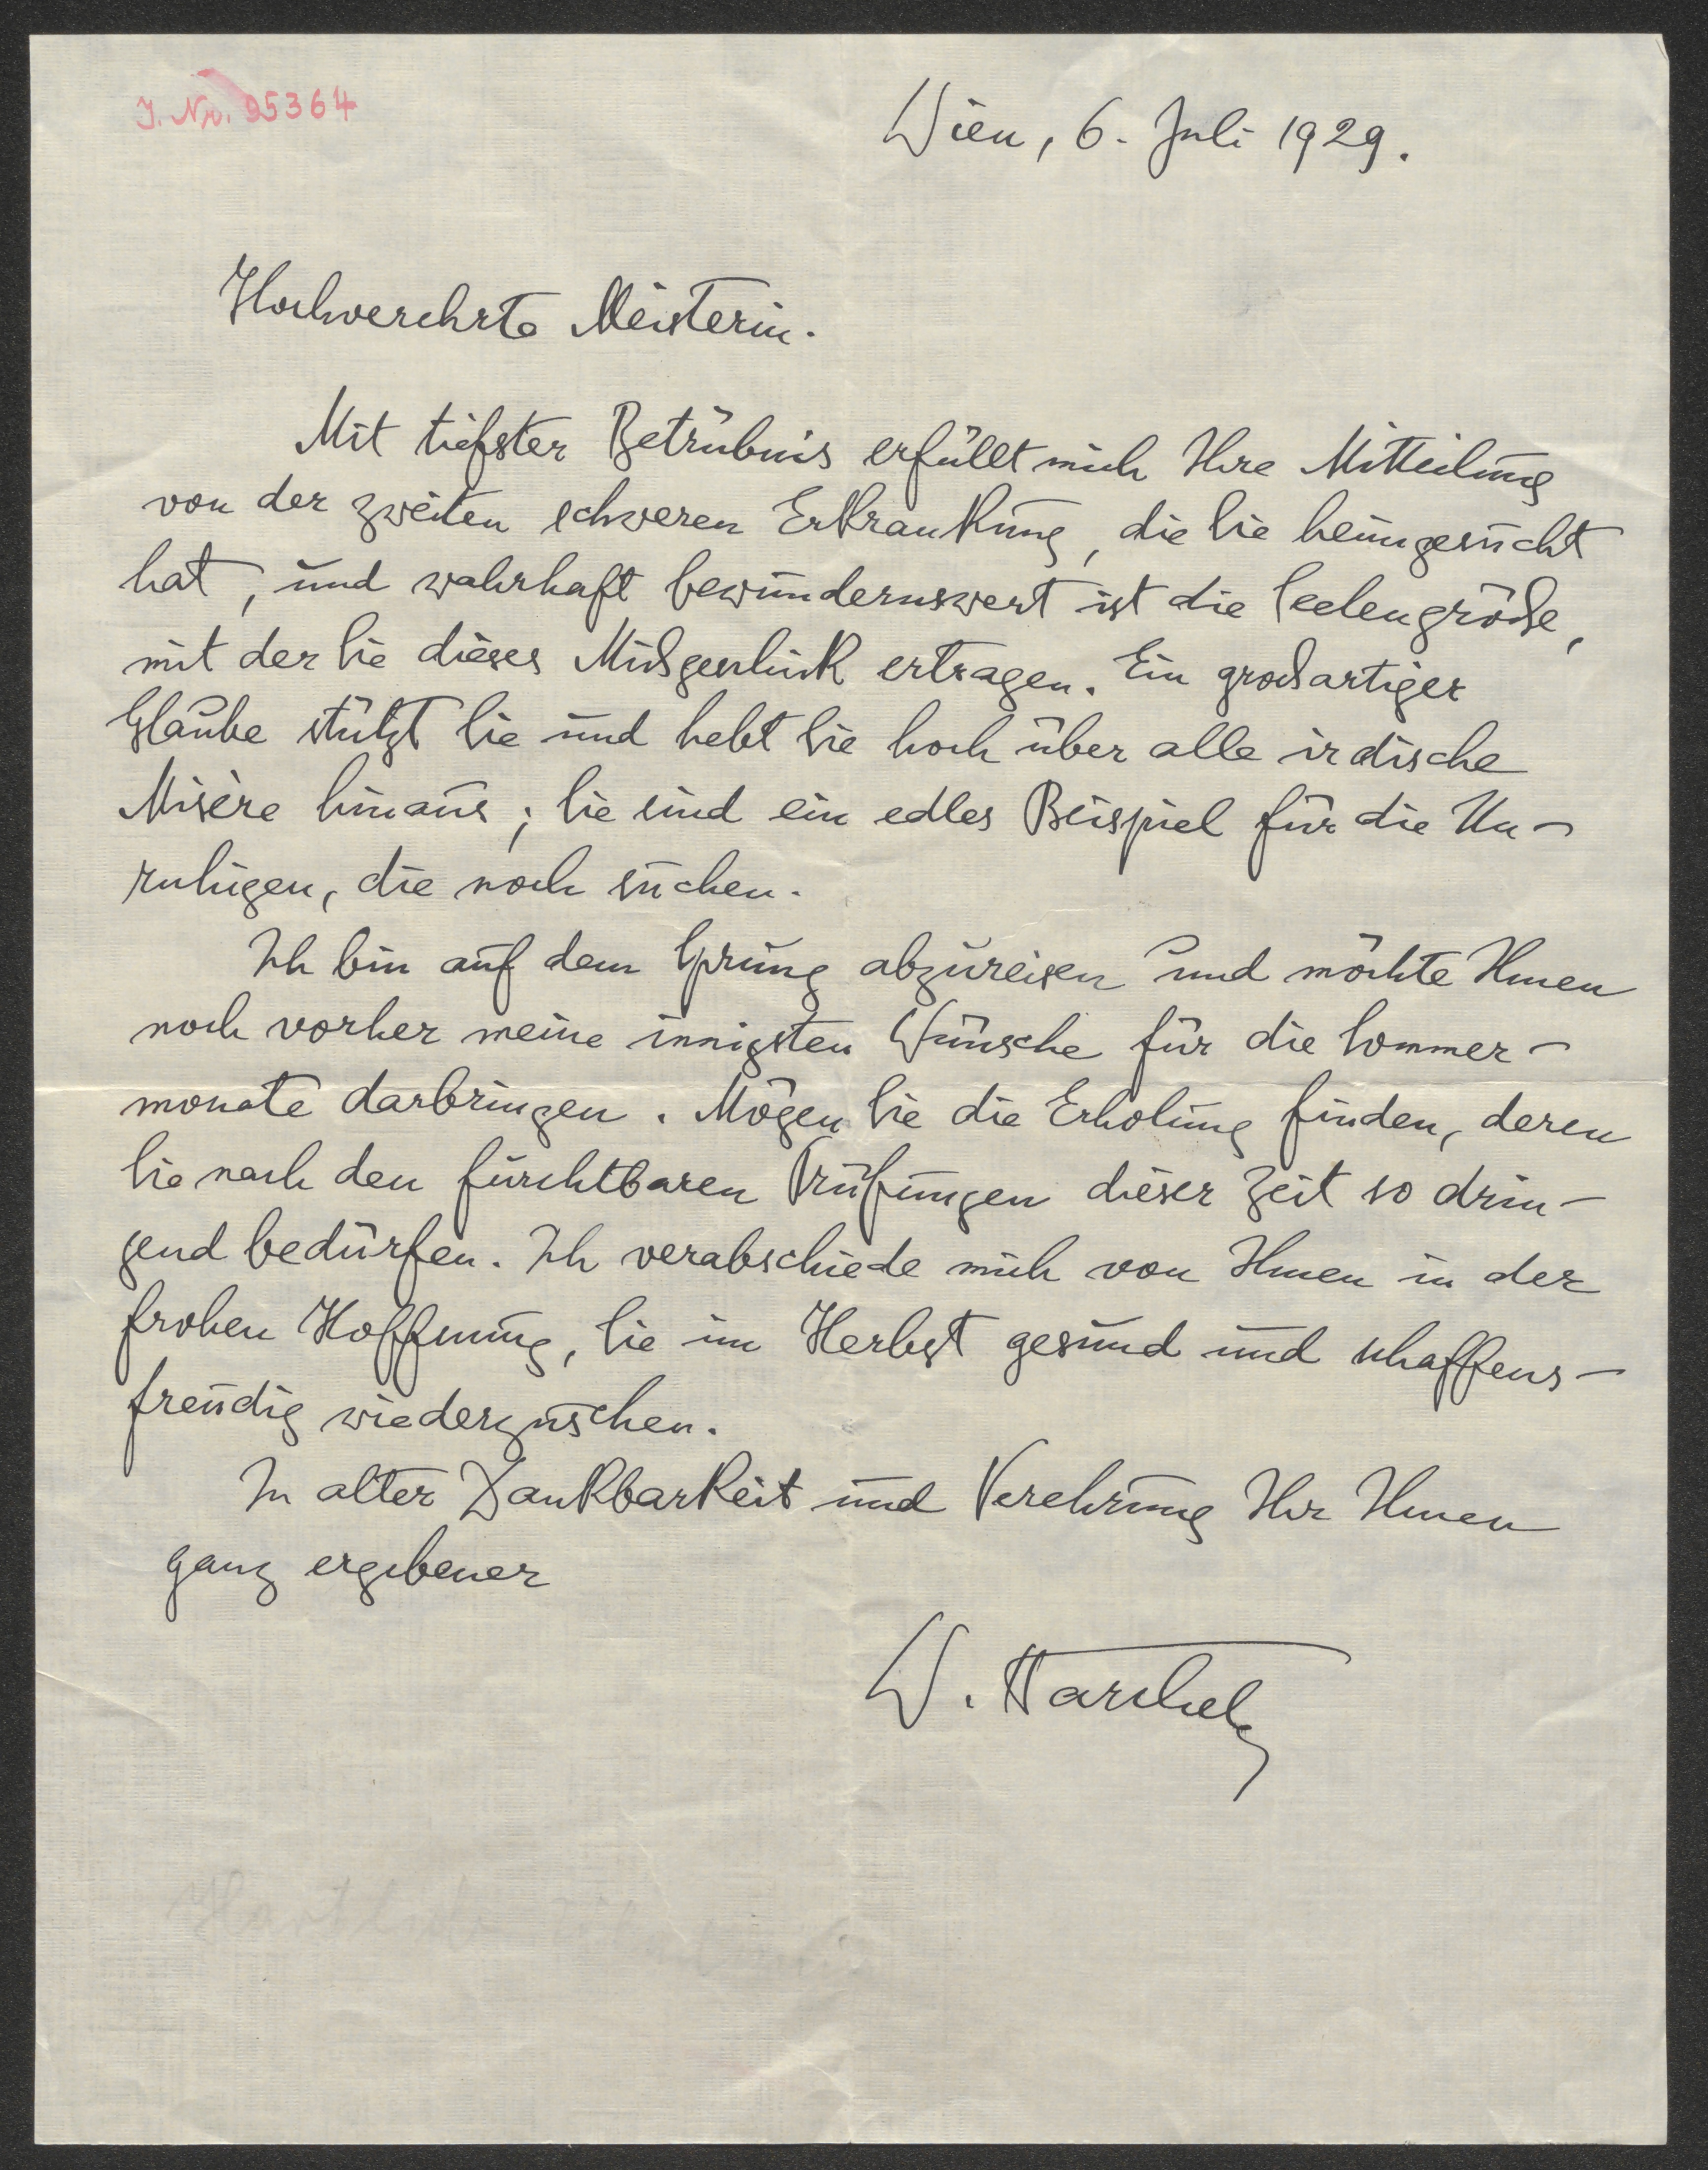 J. Nr. 95364
Wien, 6. Juli 1929.
Hochverehrte Meisterin.
Mit tiefster Betrübnis erfüllt mich Ihre Mitteilung
von der zweiten schweren Erkrankung, die Sie heimgesucht
hat, und wahrhaft bewundernswert ist die Seelengröße,
mit der Sie dieses Mißgeschick ertragen. Ein großartiger
Glaube stützt Sie und hebt Sie hoch über alle irdische
Misère hinaus; Sie sind ein edles Beispiel für die Un-
ruhigen, die noch suchen.
Ich bin auf dem Sprung abzureisen und möchte Ihnen
noch vorher meine innigsten Wünsche für die Sommer-
monate darbringen. Mögen Sie die Erholung finden, deren
Sie nach den furchtbaren Prüfungen dieser Zeit so drin-
gend bedürfen. Ich verabschiede mich von Ihnen in der
frohen Hoffnung, Sie im Herbst gesund und schaffens-
freudig wiederzusehen.
In alter Dankbarkeit und Verehrung Ihr Ihnen
ganz ergebener
W.